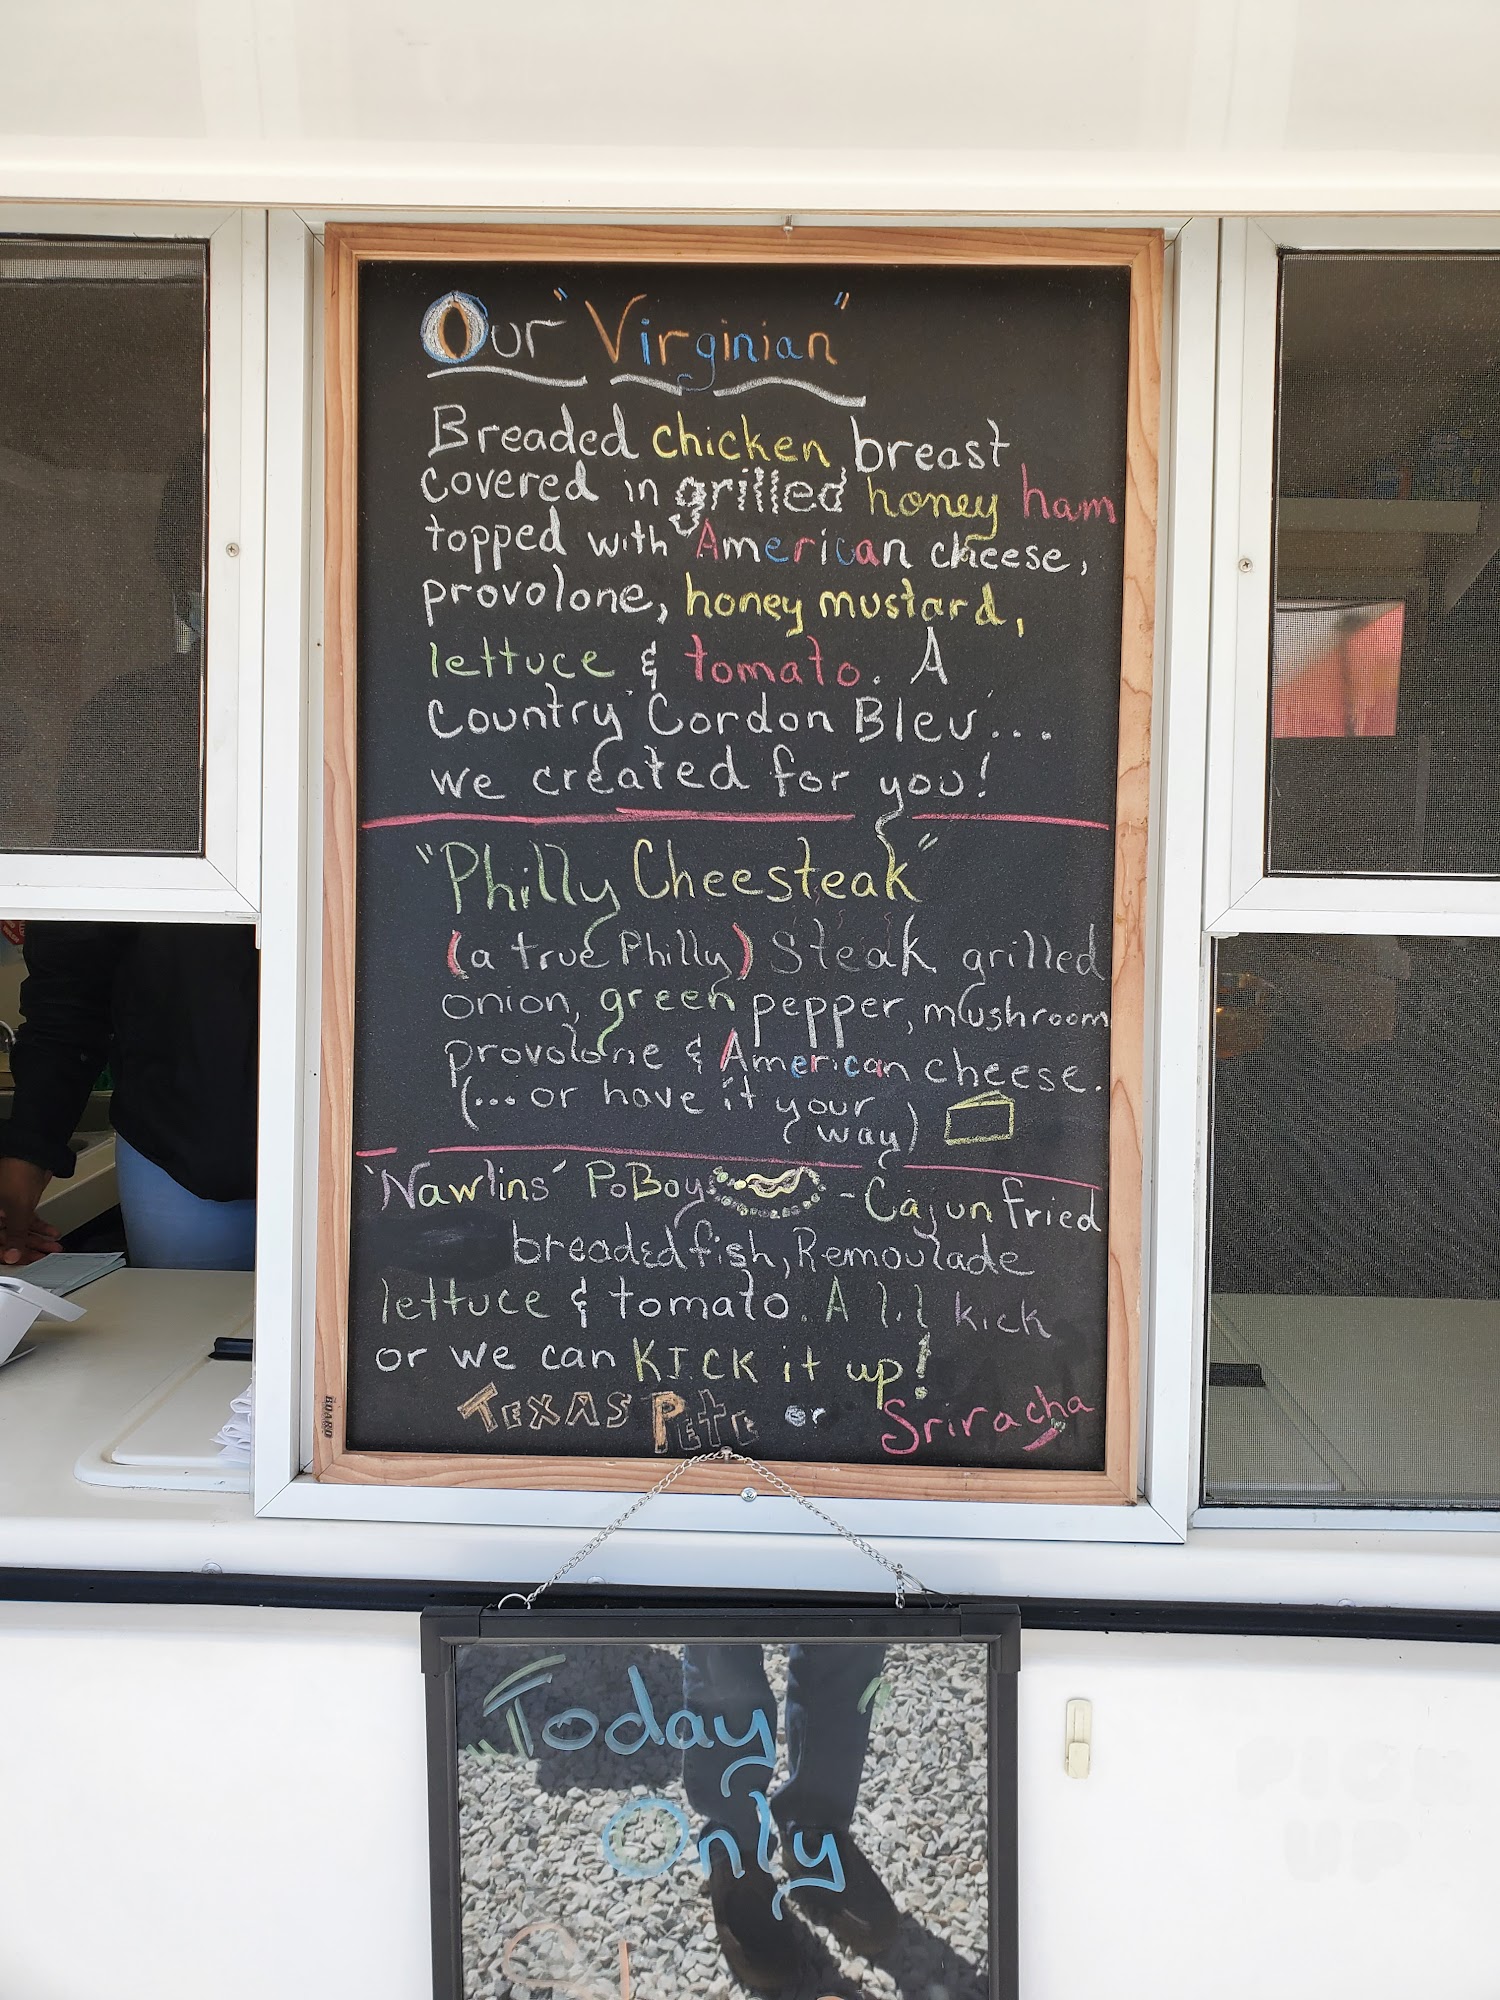 Our "Virginian"
Breaded chicken breast
covered in grilled honey ham
topped with American cheese,
provolone, honey mustard,
lettuce & tomato. A
Country Cordon Bleu...
we created for you!
"Philly Cheesteak"
(a true Philly) Steak grilled
onion, green pepper, mushroom
provolone & American cheese.
(... or have it your
way)
'Nawlins' PoBoy - Cajun fried
breaded fish, Remoulade
lettuce & tomato. A lil kick
or we can KICK it up!
TEXAS PETE or Sriracha
BOARD
"Today
Only"
PICK
UP